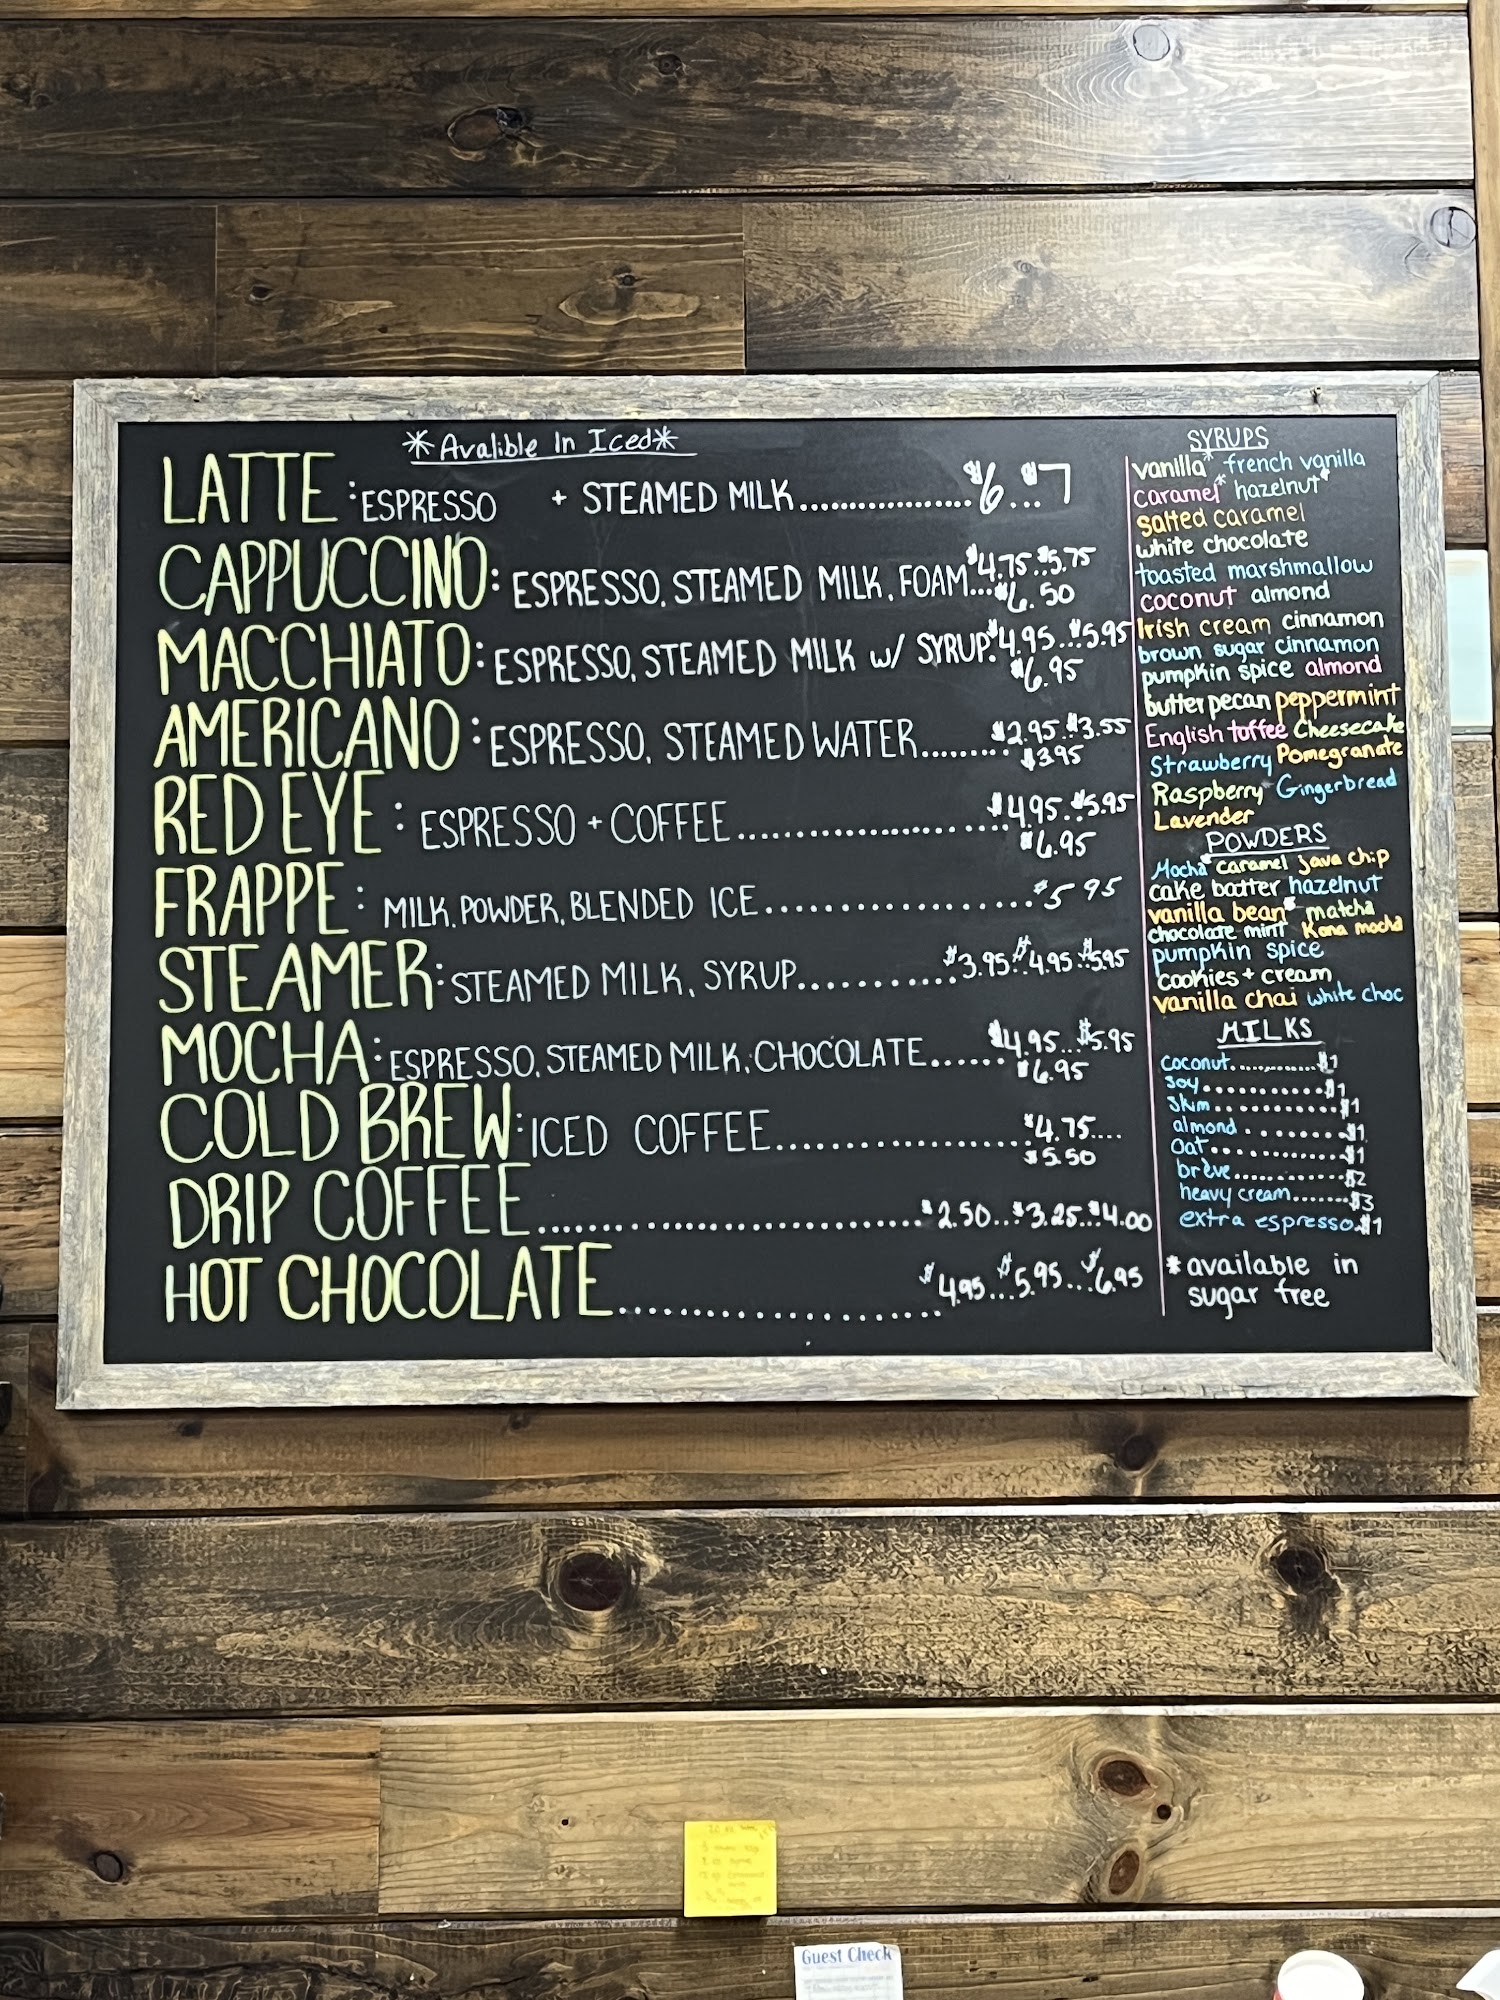 *Avalible In Iced*
LATTE: ESPRESSO + STEAMED MILK..................$6...$7
CAPPUCCINO: ESPRESSO, STEAMED MILK, FOAM...$4.75..$5.75
$6.50
MACCHIATO: ESPRESSO, STEAMED MILK w/ SYRUP.$4.95...$5.95
$6.95
AMERICANO: ESPRESSO, STEAMED WATER.........$2.95.$3.55
$3.95
RED EYE: ESPRESSO + COFFEE........................$4.95.$5.95
$6.95
FRAPPE: MILK, POWDER, BLENDED ICE....................$5 95
STEAMER: STEAMED MILK, SYRUP............$3.95..$4.95.$5.95
MOCHA: ESPRESSO, STEAMED MILK, CHOCOLATE......$4.95...$5.95
$6.95
COLD BREW: ICED COFFEE...................$4.75....
$5.50
DRIP COFFEE..............................$2.50...$3.25...$4.00
HOT CHOCOLATE....................$4.95...$5.95...$6.95
SYRUPS
vanilla* french vanilla
caramel* hazelnut*
salted caramel
white chocolate
toasted marshmallow
coconut almond
Irish cream cinnamon
brown sugar cinnamon
pumpkin spice almond
butter pecan peppermint
English toffee Cheesecake
Strawberry Pomegranate
Raspberry Gingerbread
Lavender
POWDERS
Mocha* caramel java chip
cake batter hazelnut
vanilla bean* matcha
chocolate mint Kona mocha
pumpkin spice
cookies + cream
vanilla chai white choc
MILKS
coconut.............$1
soy............$1
skim............$1
almond.........$1
Oat.............$1
brève............$2
heavy cream.......$3
extra espresso.$1
*available in
sugar free
Guest Check